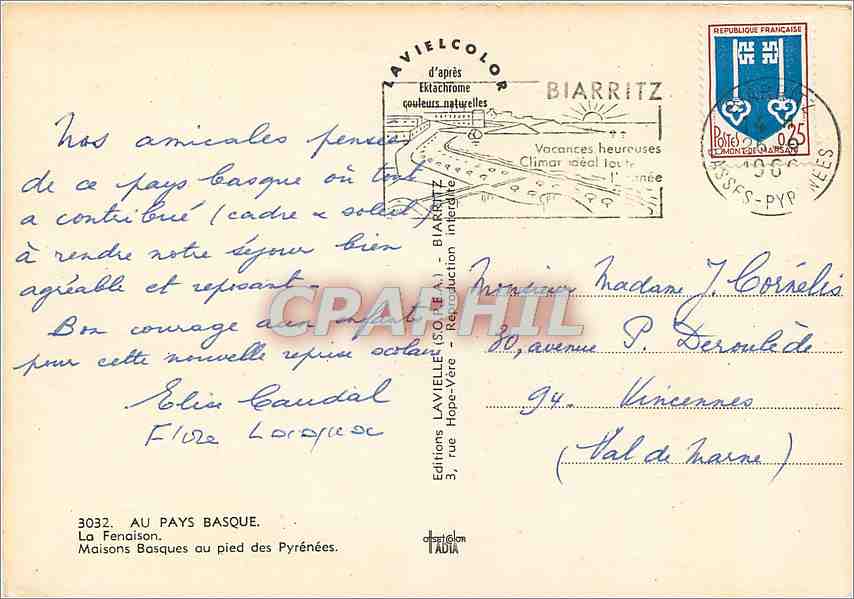 LAVIELCOLOR
d'après
Ektachrome
couleurs naturelles
BIARRITZ
Vacances heureuses
Climat idéal toute
l'année
REPUBLIQUE FRANÇAISE
POSTES 0,25
MONT-DE-MARSAN
BIARRITZ
1966
BASSES-PYRENEES
Nos amicales pensées
de ce pays basque où tout
a contribué (cadre & soleil)
à rendre notre séjour bien
agréable et reposant.
Bon courage aux enfants
pour cette nouvelle reprise scolaire
Elise Caudal
Monsieur Madame J. Cornélis
30, avenue P. Deroulède
94. Vincennes
(Val de Marne)
Editions LAVIELLE (S.O.P.E.A.) - BIARRITZ
3, rue Hope-Vère - Reproduction interdite
CPARPHIL
3032. AU PAYS BASQUE.
La Fenaison.
Maisons Basques au pied des Pyrénées.
offset color
IADTA